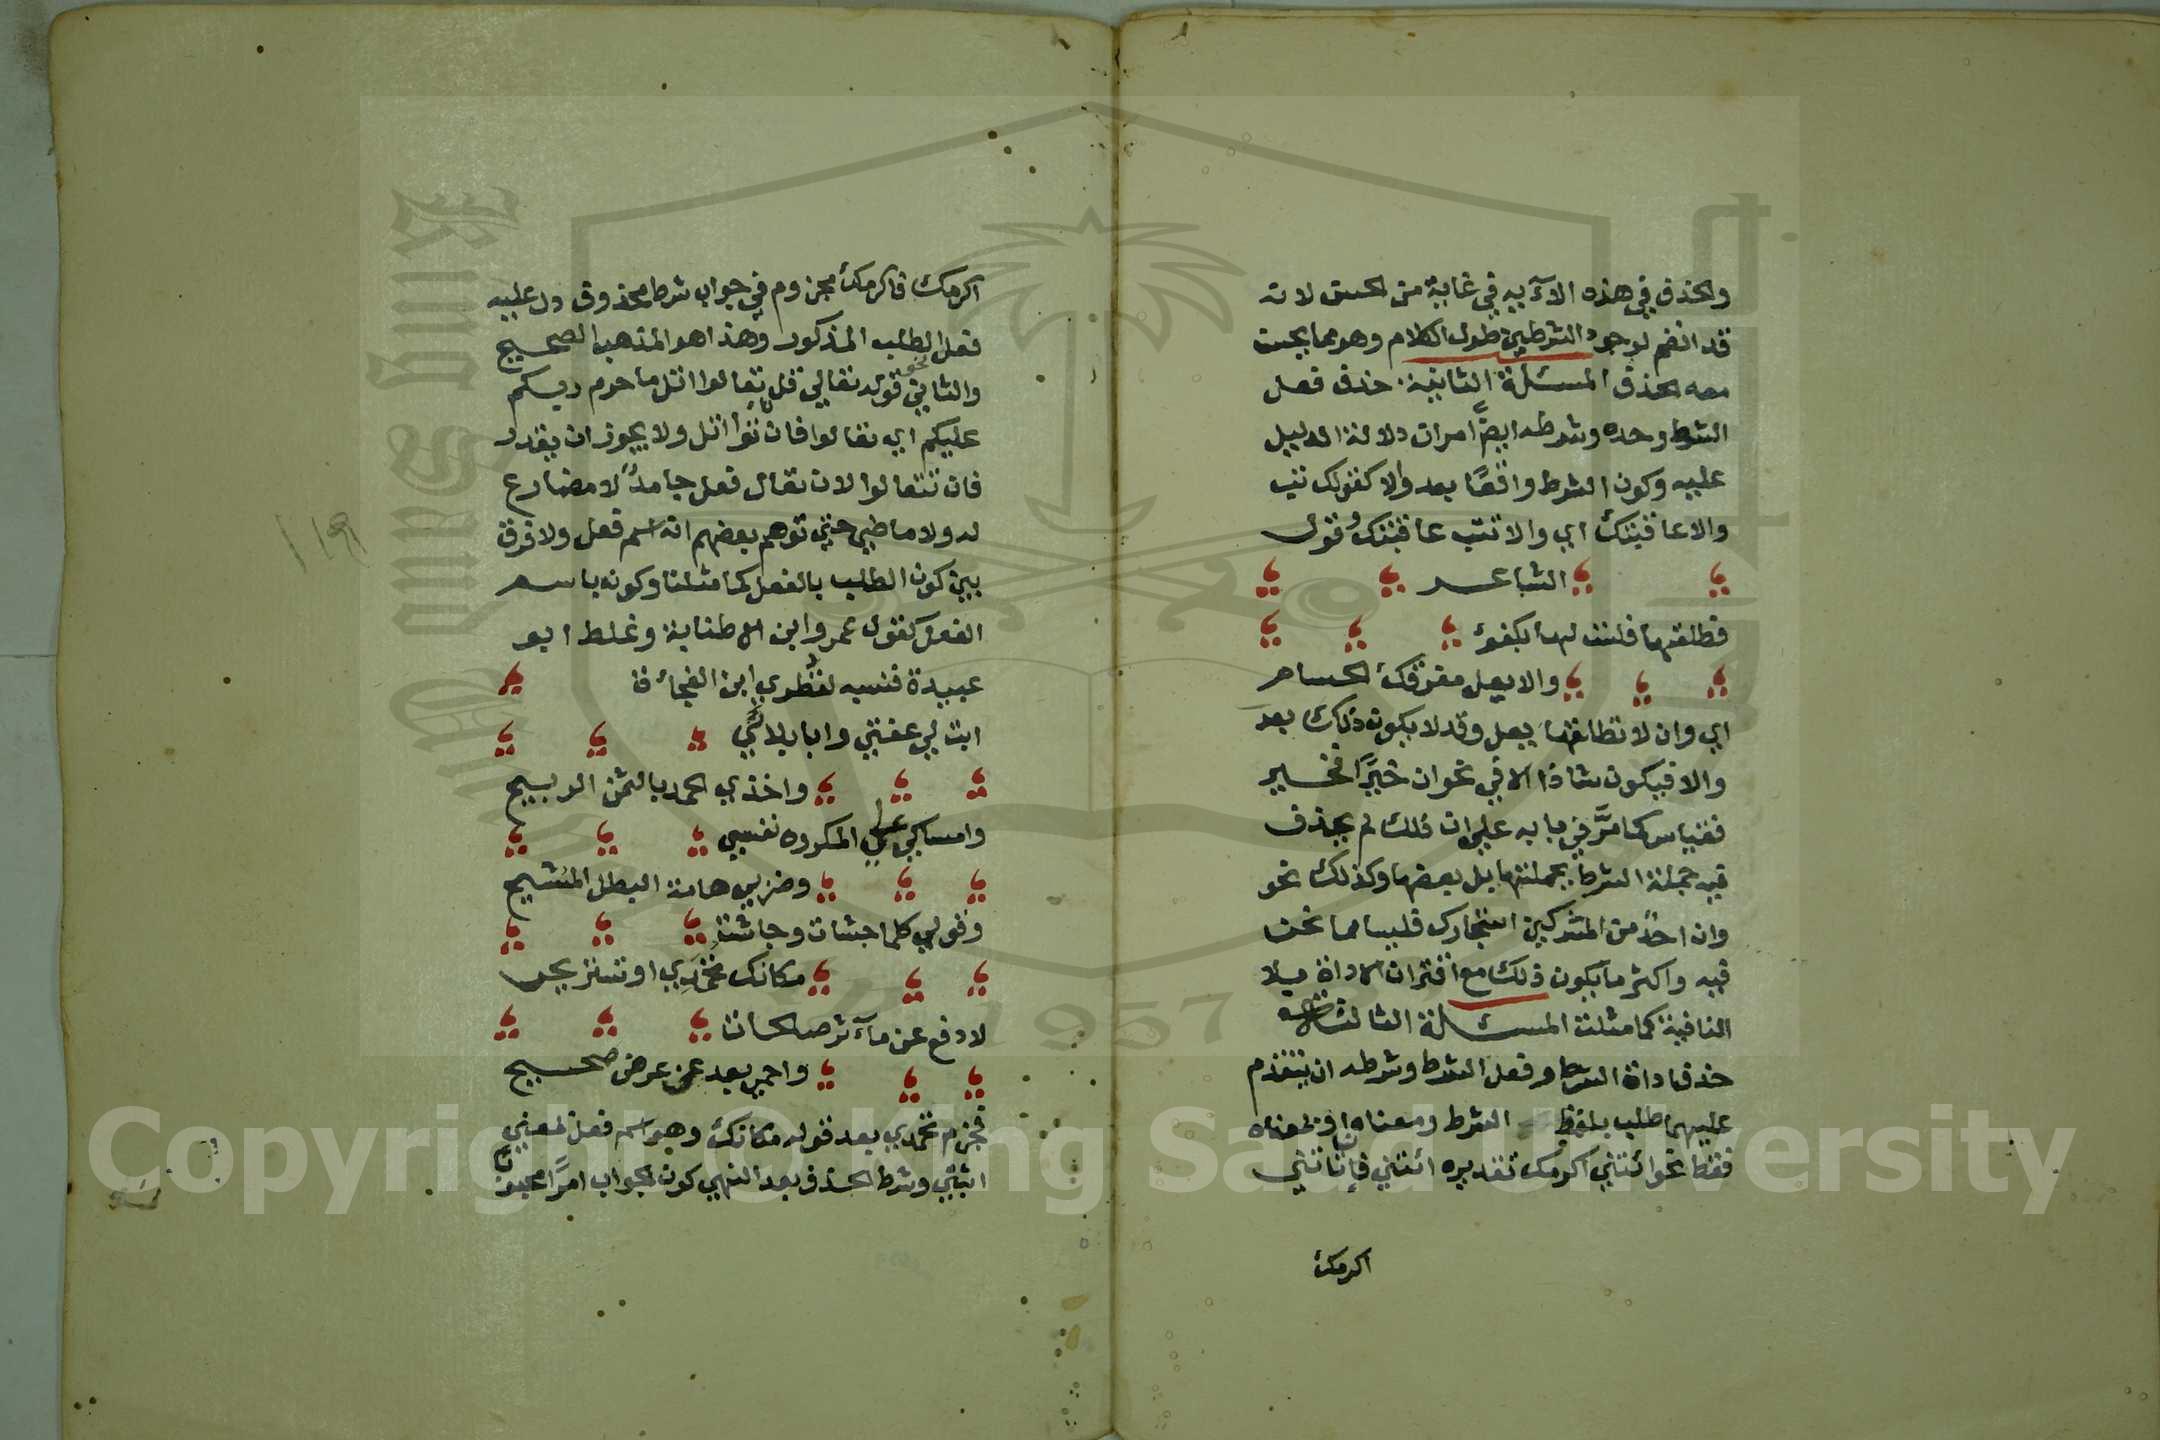 والحذف في هذه الآية في غاية من الحسن لانه
قد انضم لوجود الشرطين طول الكلام وهو مما يحسن
معه الحذف المسئلة الثانية حذف فعل
الشرط وحده وشرطه ايضًا امران دلالة الدليل
عليه وكون الشرط واقعًا بعد والا كقولك تب
والا عاقبتك اي والا تتب عاقبتك وقول
الشاعر
فطلقها فلست لها بكفوء
والا يعل مفرقك الحسام
اي وان لا تطلقها يعل وقد لا يكون ذلك بعد
والا فيكون شاذا الا في نحو ان خيرًا فخير
فقياس كما مرّ في بابه على ان ذلك لم يحذف
فيه جملة الشرط بجملتها بل بعضها وكذلك نحو
وان احدٌ من المشركين استجارك فليسا مما نحن
فيه واكثر ما يكون ذلك مع اقتران الاداة بلا
النافية كما مثلت المسئلة الثالثة
حذف اداة الشرط وفعل الشرط وشرطه ان يتقدم
عليهما طلب بلفظ الشرط ومعناه او بمعناه
فقط نحو ائتني اكرمك تقديره ائتني فان تأتني
اكرمك
اكرمك فاكرمك مجزوم في جواب شرط محذوف دل عليه
فعل الطلب المذكور وهذا هو المذهب الصحيح
والثاني نحو قوله تعالى قل تعالوا اتل ما حرم ربكم
عليكم اي تعالوا فان تأتوا اتل ولا يجوز ان يقدر
فان تتعالوا لان تعال فعل جامدٌ لا مضارع
له ولا ماضي حتى توهم بعضهم انه اسم فعل ولا فرق
بين كون الطلب بالفعل كما مثلنا وكونه باسم
الفعل كقول عمرو ابن الاطنابة وغلط ابو
عبيدة فنسبه لقطري ابن الفجاءة
ابت لي عفتي وابا بلائي
واخذي الحمد بالثمن الربيح
وامساكي على المكروه نفسي
وضربي هامة البطل المشيح
وقولي كلما جشات وجاشت
مكانك تحمدي او تستريحي
لادفع عن مآثر صالحات
واحمي بعد عن عرض صحيح
فجزم تحمدي بعد قوله مكانك وهو اسم فعل بمعنى
اثبتي وشرط الحذف بعد النهي كون الجواب امرًا محبوبًا
١١٩
Copyright © King Saud University
1957